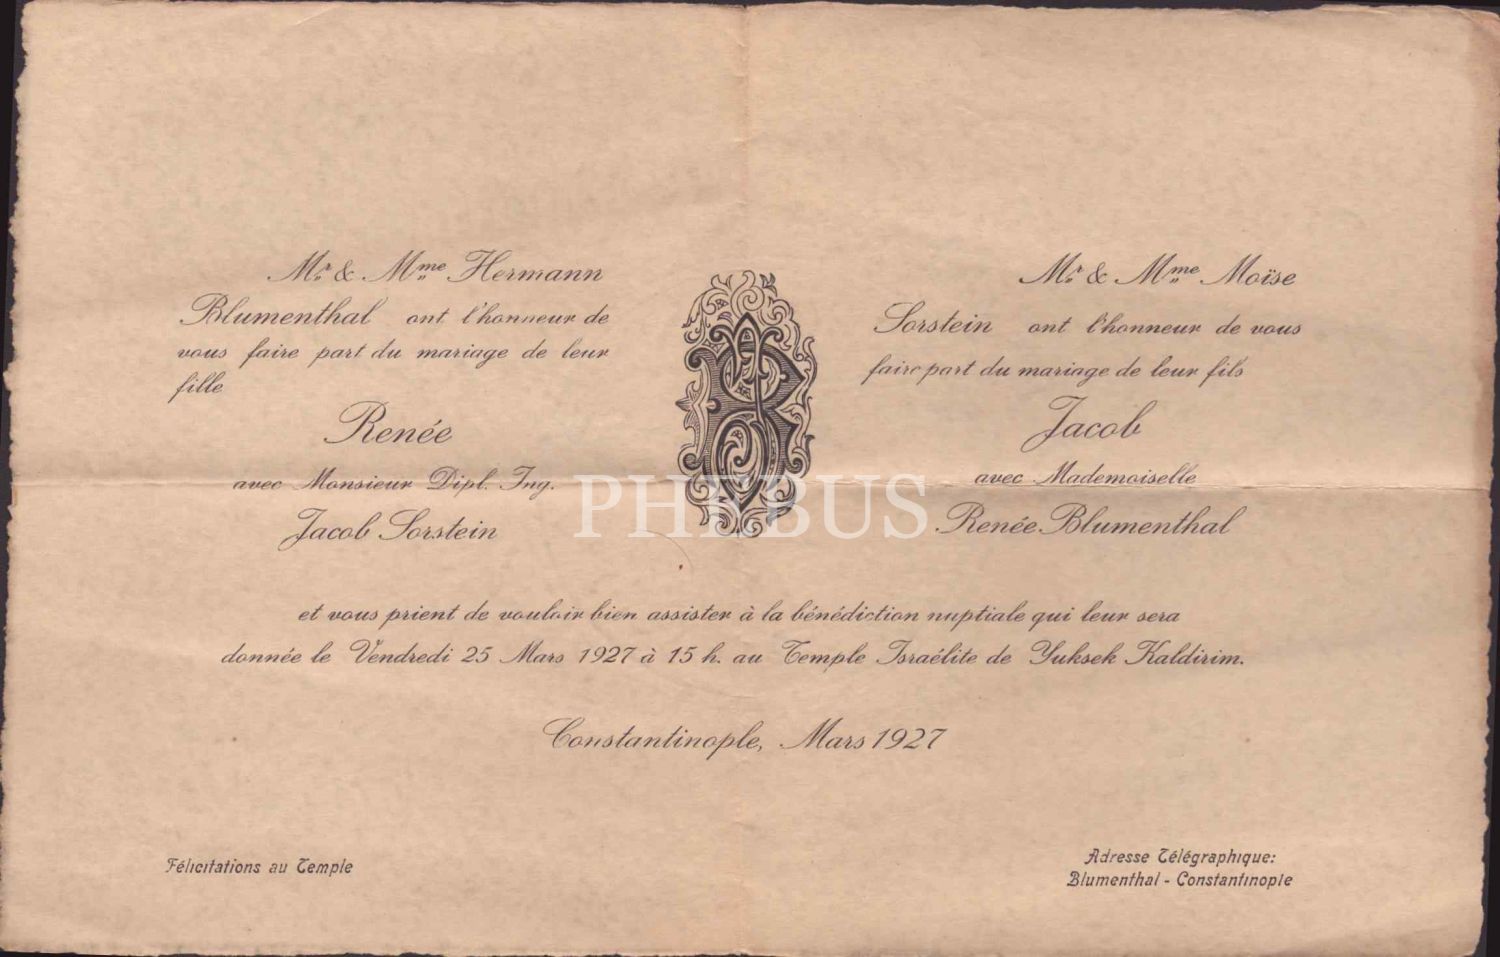 Mr & Mme Hermann
Blumenthal ont l'honneur de
vous faire part du mariage de leur
fille
Renée
avec Monsieur Dipl. Ing.
Jacob Sorstein
Mr & Mme Moïse
Sorstein ont l'honneur de vous
faire part du mariage de leur fils
Jacob
avec Mademoiselle
Renée Blumenthal
PHEBUS
et vous prient de vouloir bien assister à la bénédiction nuptiale qui leur sera
donnée le Vendredi 25 Mars 1927 à 15 h. au Temple Israélite de Yuksek Kaldirim.
Constantinople, Mars 1927
Félicitations au Temple
Adresse Télégraphique:
Blumenthal - Constantinople